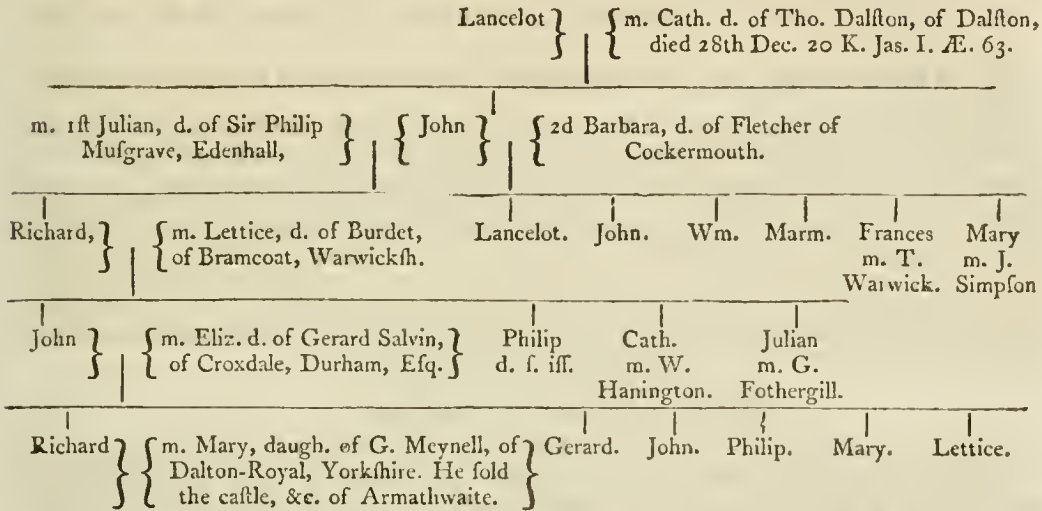 Lancelot } { m. Cath. d. of Tho. Dalſton, of Dalſton,
died 28th Dec. 20 K. Jas. I. Æ. 63.
m. 1ſt Julian, d. of Sir Philip
Muſgrave, Edenhall, } { John } { 2d Barbara, d. of Fletcher of
Cockermouth.
Richard, } { m. Lettice, d. of Burdet,
of Bramcoat, Warwickſh.
Lancelot. John. Wm. Marm. Frances
m. T.
Warwick.
Mary
m. J.
Simpſon
John } { m. Eliz. d. of Gerard Salvin,
of Croxdale, Durham, Eſq. }
Philip
d. ſ. iſſ.
Cath.
m. W.
Hanington.
Julian
m. G.
Fothergill.
Richard } { m. Mary, daugh. of G. Meynell, of
Dalton-Royal, Yorkſhire. He ſold
the caſtle, &c. of Armathwaite. }
Gerard. John. Philip. Mary. Lettice.